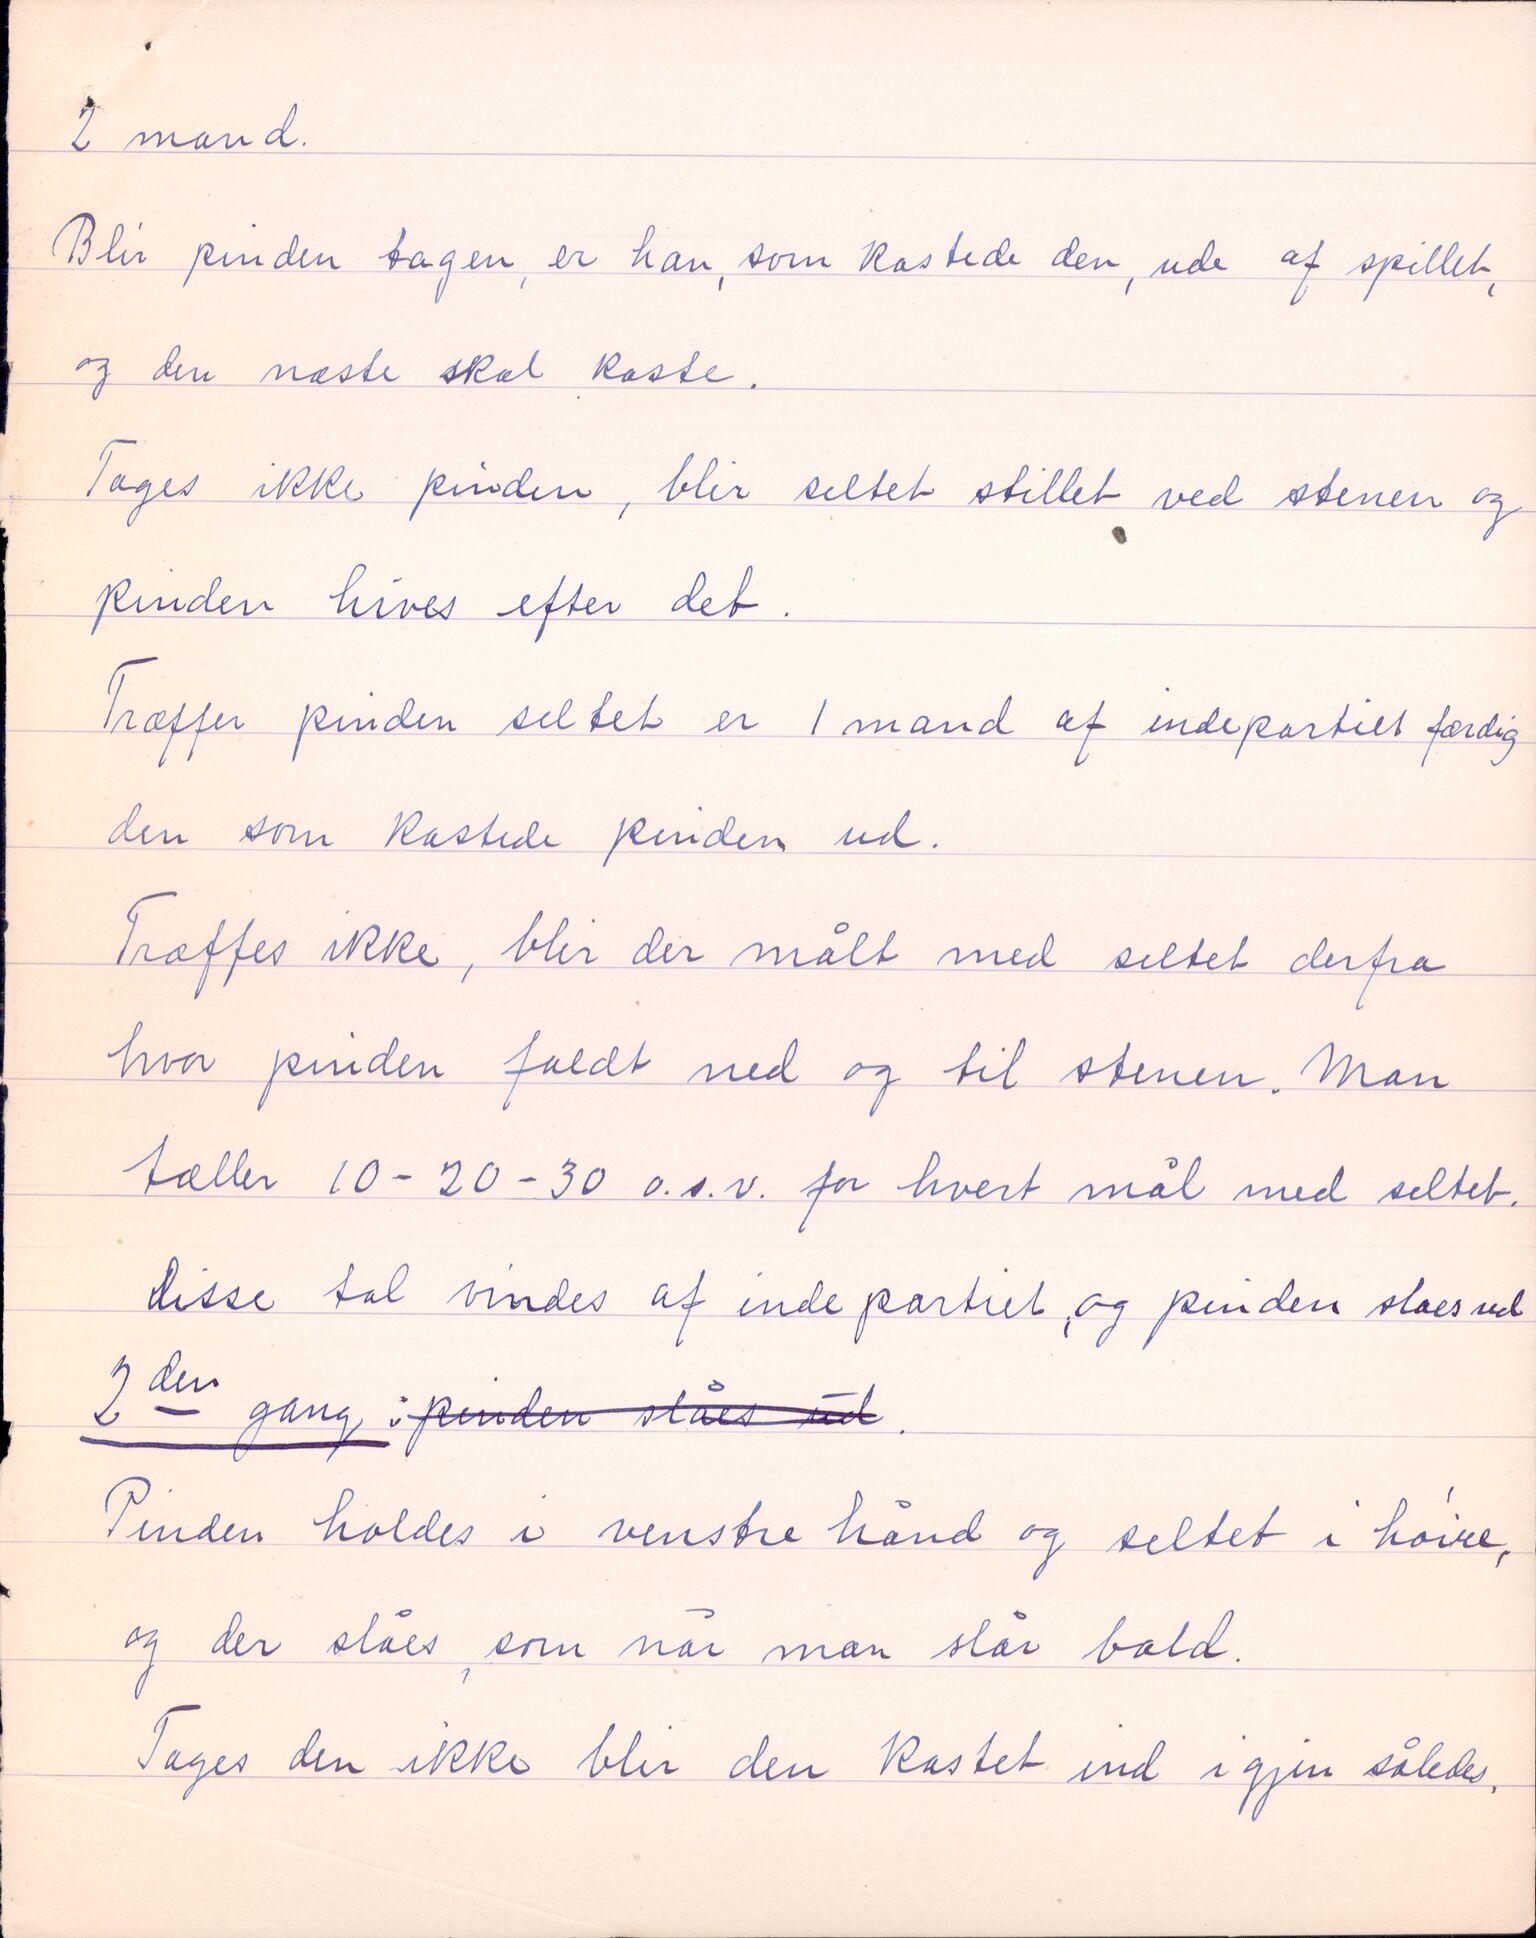 2 mand.
Blir pinden tagen, er han, som kastede den, ude af spillet,
og den næste skal kaste.
Tages ikke pinden, blir seltet stillet ved stenen og
pinden hives efter det.
Træffer pinden seltet er 1 mand af indepartiet færdig
den som kastede pinden ud.
Træffes ikke, blir der målt med seltet derfra
hvor pinden faldt ned og til stenen. Man
tæller 10-20-30 o.s.v. for hvert mål med seltet.
Disse tal vindes af indepartiet, og pinden slaes ud
2den gang: pinden slåes ud.
Pinden holdes i venstre hånd og seltet i høire,
og der slåes, som når man slår bald.
Tages den ikke blir den kastet ind igjen således.